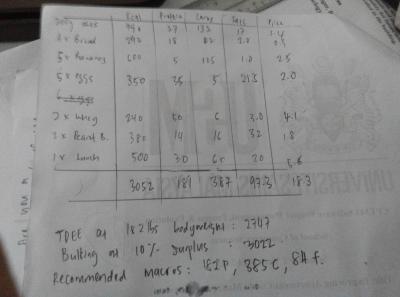 Kcal Protein Carbs Fats Price
200g oats 37 132 17 1.4
4 x Bread 18 82 2.0
5 x Bananas 600 5 135 1.0 2.5
5 x Eggs 350 25 5 21.5 2.0
2 x Whey 240 50 6 3.0 4.1
2 x Peanut B. 380 14 16 32 1.8
1 x Lunch 500 30 65 20
3052 189 387 97.3 18.3
TDEE at 182 lbs bodyweight : 2747
Bulking at 10% surplus : 3022
Recommended macros : 182P, 385C, 84f.